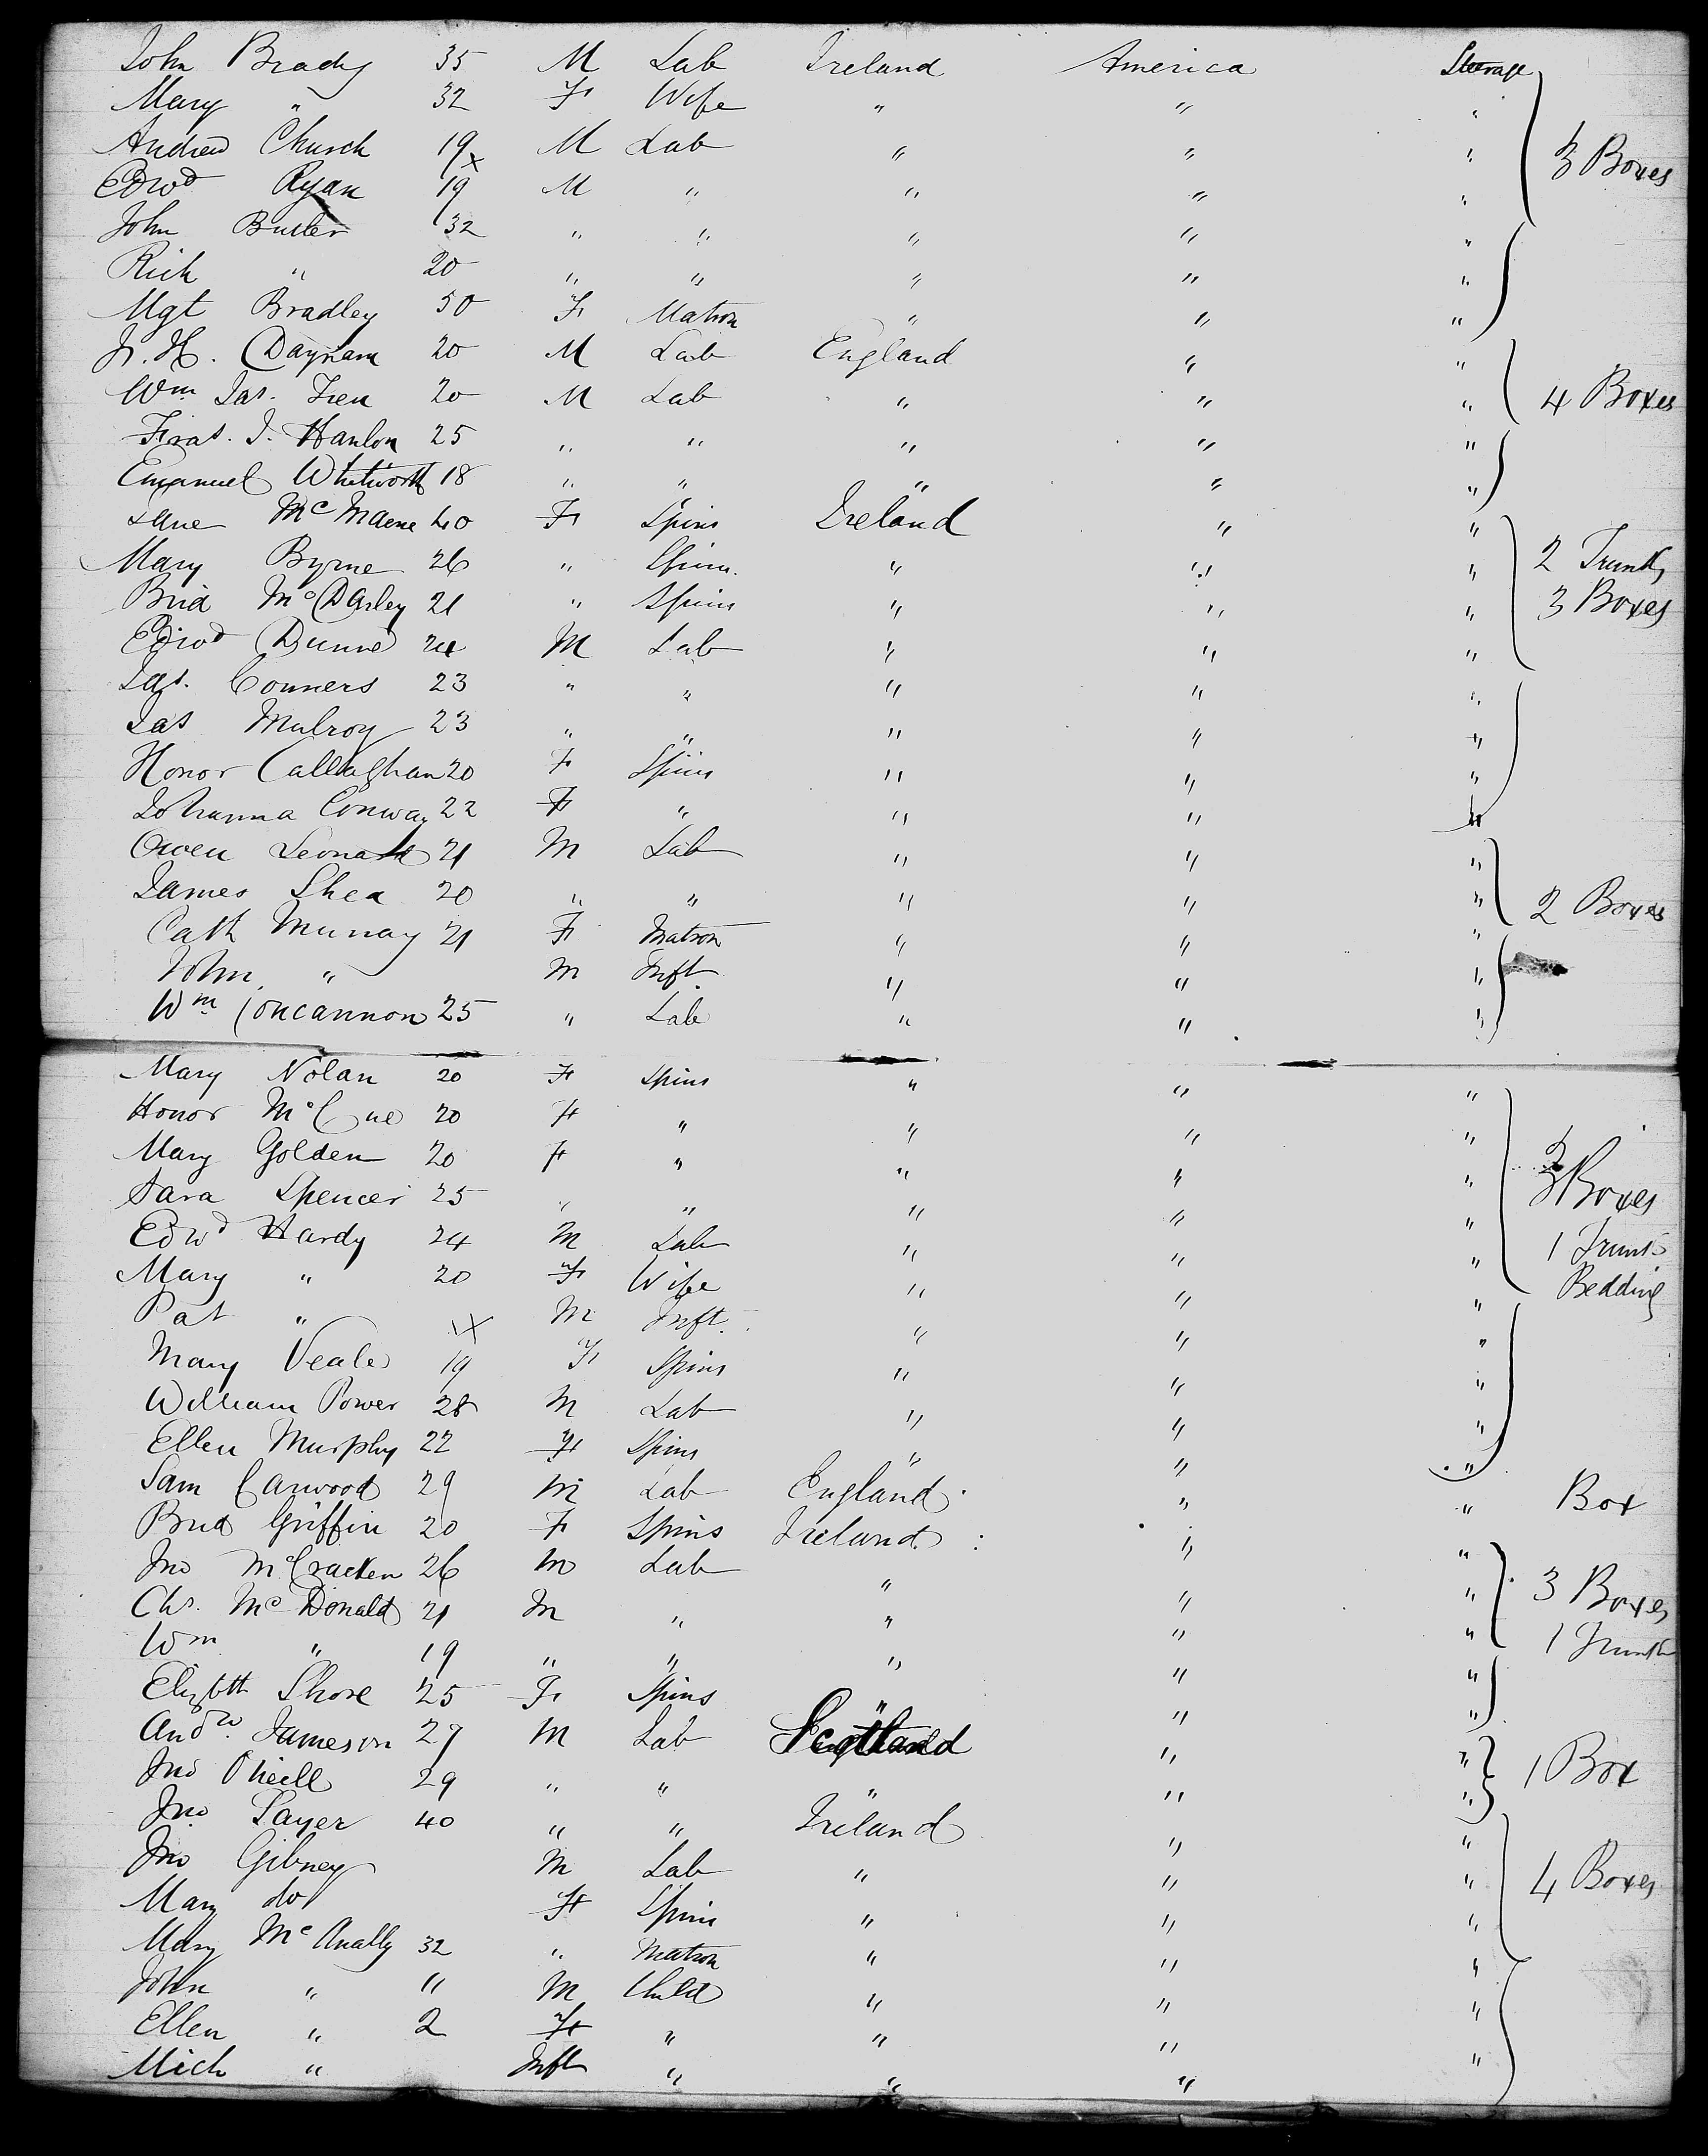 John Brady 35 M Lab Ireland America Steerage
Mary " 32 F Wife " " "
Andrew Church 19 M Lab " " "
3 Boxes
Edwd Ryan 19 M " " " "
John Butler 32 " " " " "
Rich " 20 " " " " "
Mgt Bradley 50 F Matron " " "
J. H. Daynam 20 M Lab England " "
Wm Jas. Fren 20 M Lab " " " 4 Boxes
Fras. J. Hanlon 25 " " " " "
Emanuel Whitworth 18 " " " " "
Jane Mc Maene 40 F Spins Ireland " "
Mary Byrne 26 " Spins. " " " 2 Trunks
Brid McDarley 21 " Spins " " " 3 Boxes
Edwd Dunne 24 M Lab " " "
Jas. Conners 23 " " " " "
Jas Mulroy 23 " " " " "
Honor Callaghan 20 F Spins " " "
Johanna Conway 22 F " " " "
Owen Leonard 21 M Lab " " "
James Shea 20 " " " " " 2 Boxes
Cath Murray 21 F Matron " " "
John " M Inft. " " "
Wm Concannon 25 " Lab " " "
Mary Nolan 20 F Spins " " "
Honor McCue 20 F " " " "
Mary Golden 20 F " " " "
Sara Spencer 25 " " " " " 3 Boxes
Edwd Hardy 24 M Lab " " " 1 Trunk
Mary " 20 F Wife " " " Bedding
Pat " M Inft. " " "
Mary Veale 19 F Spins " " "
William Power 28 M Lab " " "
Ellen Murphy 22 F Spins " " "
Sam Carwood 29 M Lab England " " Box
Brid Griffin 20 F Spins Ireland " "
Jno McCracken 26 M Lab " " " 3 Boxes
Chs. Mc Donald 21 M " " " " 1 Trunk
Wm " 19 " " " " "
Elizbth Shore 25 F Spins " " "
Andw. Jameson 27 M Lab Scotland " " 1 Box
Jno O'neill 29 " " " " "
Jno. Sayer 40 " " Ireland " "
Jno Gibney M Lab " " " 4 Boxes
Mary do F Spins " " "
Mary Mc Anally 32 " Matron " " "
John " " M Child " " "
Ellen " 2 F " " " "
Mich " Inft " " "